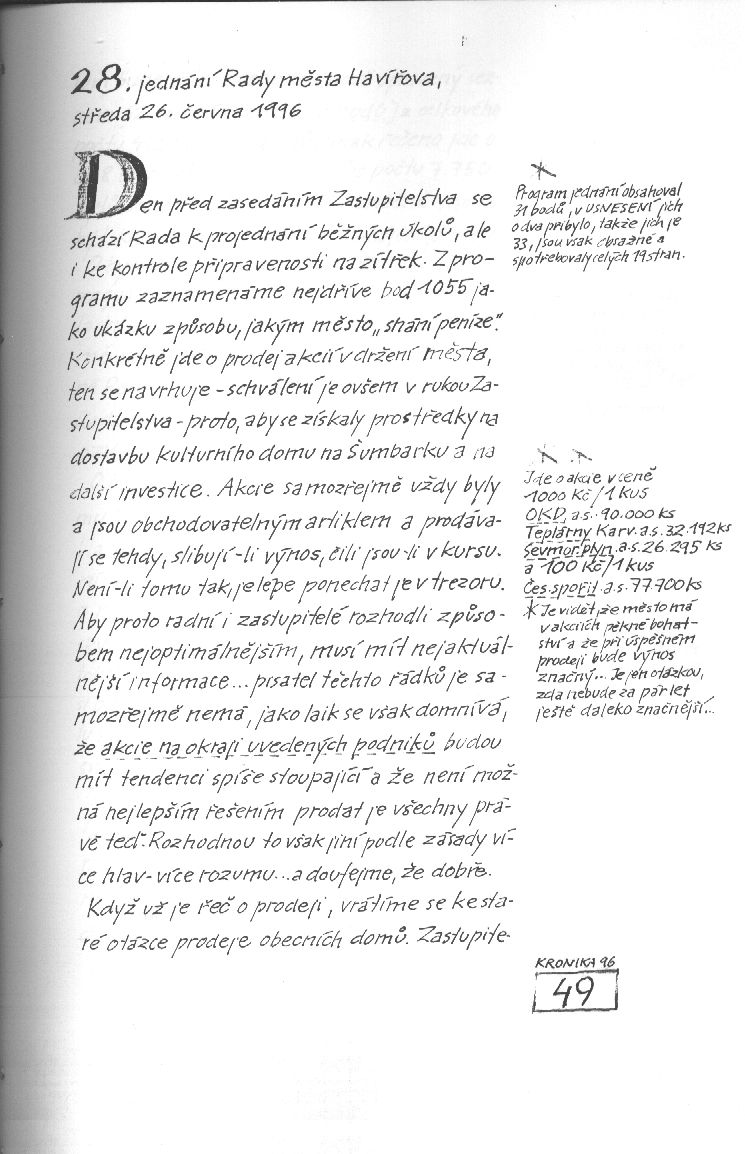 28. jednání Rady města Havířova,
středa 26. června 1996
Den před zasedáním Zastupitelstva se
schází Rada k projednání běžných úkolů, ale
i ke kontrole připravenosti na zítřek. Z pro-
gramu zaznamenáme nejdříve bod 1055 ja-
ko ukázku způsobu, jakým město „shání peníze".
Konkrétně jde o prodej akcií v držení města,
ten se navrhuje - schválení je ovšem v rukou Za-
stupitelstva - proto, aby se získaly prostředky na
dostavbu kulturního domu na Šumbarku a na
další investice. Akcie samozřejmě vždy byly
a jsou obchodovatelným artiklem a prodáva-
jí se tehdy, slibují-li výnos, čili jsou-li v kursu.
Není-li tomu tak, je lépe ponechat je v trezoru.
Aby proto radní i zastupitelé rozhodli způso-
bem nejoptimálnějším, musí mít nejaktuál-
nější informace... pisatel těchto řádků je sa-
mozřejmě nemá, jako laik se však domnívá,
že akcie na okraji uvedených podniků budou
mít tendenci spíše stoupající a že není mož-
ná nejlepším řešením prodat je všechny prá-
vě teď. Rozhodnou to však jiní podle zásady ví-
ce hlav - více rozumu... a doufejme, že dobře.
Když už je řeč o prodeji, vrátíme se ke sta-
ré otázce prodeje obecních domů. Zastupite-
Program jednání obsahoval
31 bodů, v USNESENÍ jich
o dva přibylo, takže jich je
33, jsou však obsažné a
spotřebovaly celých 19 stran.
Jde o akcie v ceně
1000 Kč/1 kus
OKD, a.s. 90.000 ks
Teplárny Karv. a.s. 32.192 ks
Sevmor.plyn. a.s. 26.295 ks
a 100 Kč/1 kus
Čes. spořit. a.s. 77.700 ks
* Je vidět, že město má
v akciích pěkné bohat-
ství a že při úspěšném
prodeji bude výnos
značný... Je jen otázkou,
zda nebude za pár let
ještě daleko značnější...
KRONIKA 96
49